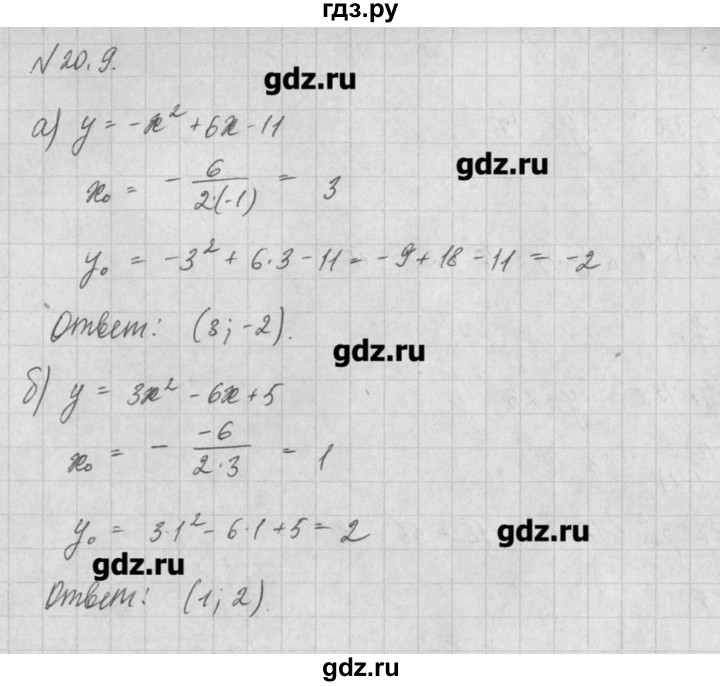 гдз.ру
№ 20.9.
gdz.ru
а) y = -x² + 6x - 11
gdz.ru
x₀ = - 6 / 2·(-1) = 3
y₀ = -3² + 6·3 - 11 = -9 + 18 - 11 = -2
Ответ: (3; -2).
gdz.ru
б) y = 3x² - 6x + 5
x₀ = - -6 / 2·3 = 1
y₀ = 3·1² - 6·1 + 5 = 2
gdz.ru
gdz.ru
Ответ: (1; 2).
gdz.ru